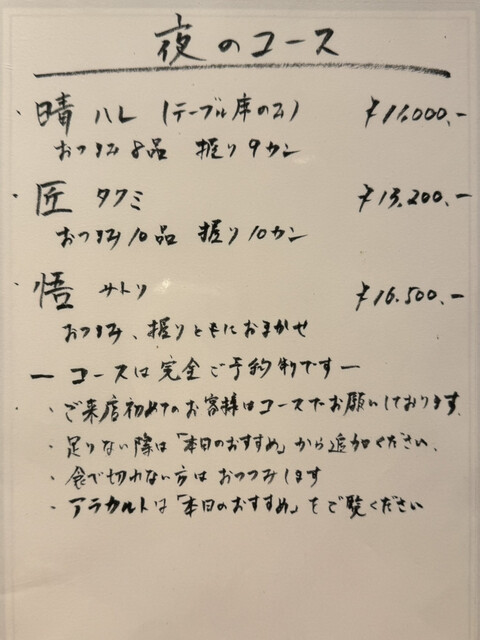 夜のコース
・晴 ハレ (テーブル席のみ) ¥11,000.-
おつまみ8品 握り9カン
・匠 タクミ ¥13,200.-
おつまみ10品 握り10カン
・悟 サトリ ¥16,500.-
おつまみ、握りともにおまかせ
ー コースは完全ご予約制です ー
・ご来店初めてのお客様はコースでお願いしております。
・足りない際は「本日のおすすめ」から追加ください。
・食べ切れない方はおつつみします
・アラカルトは「本日のおすすめ」をご覧ください